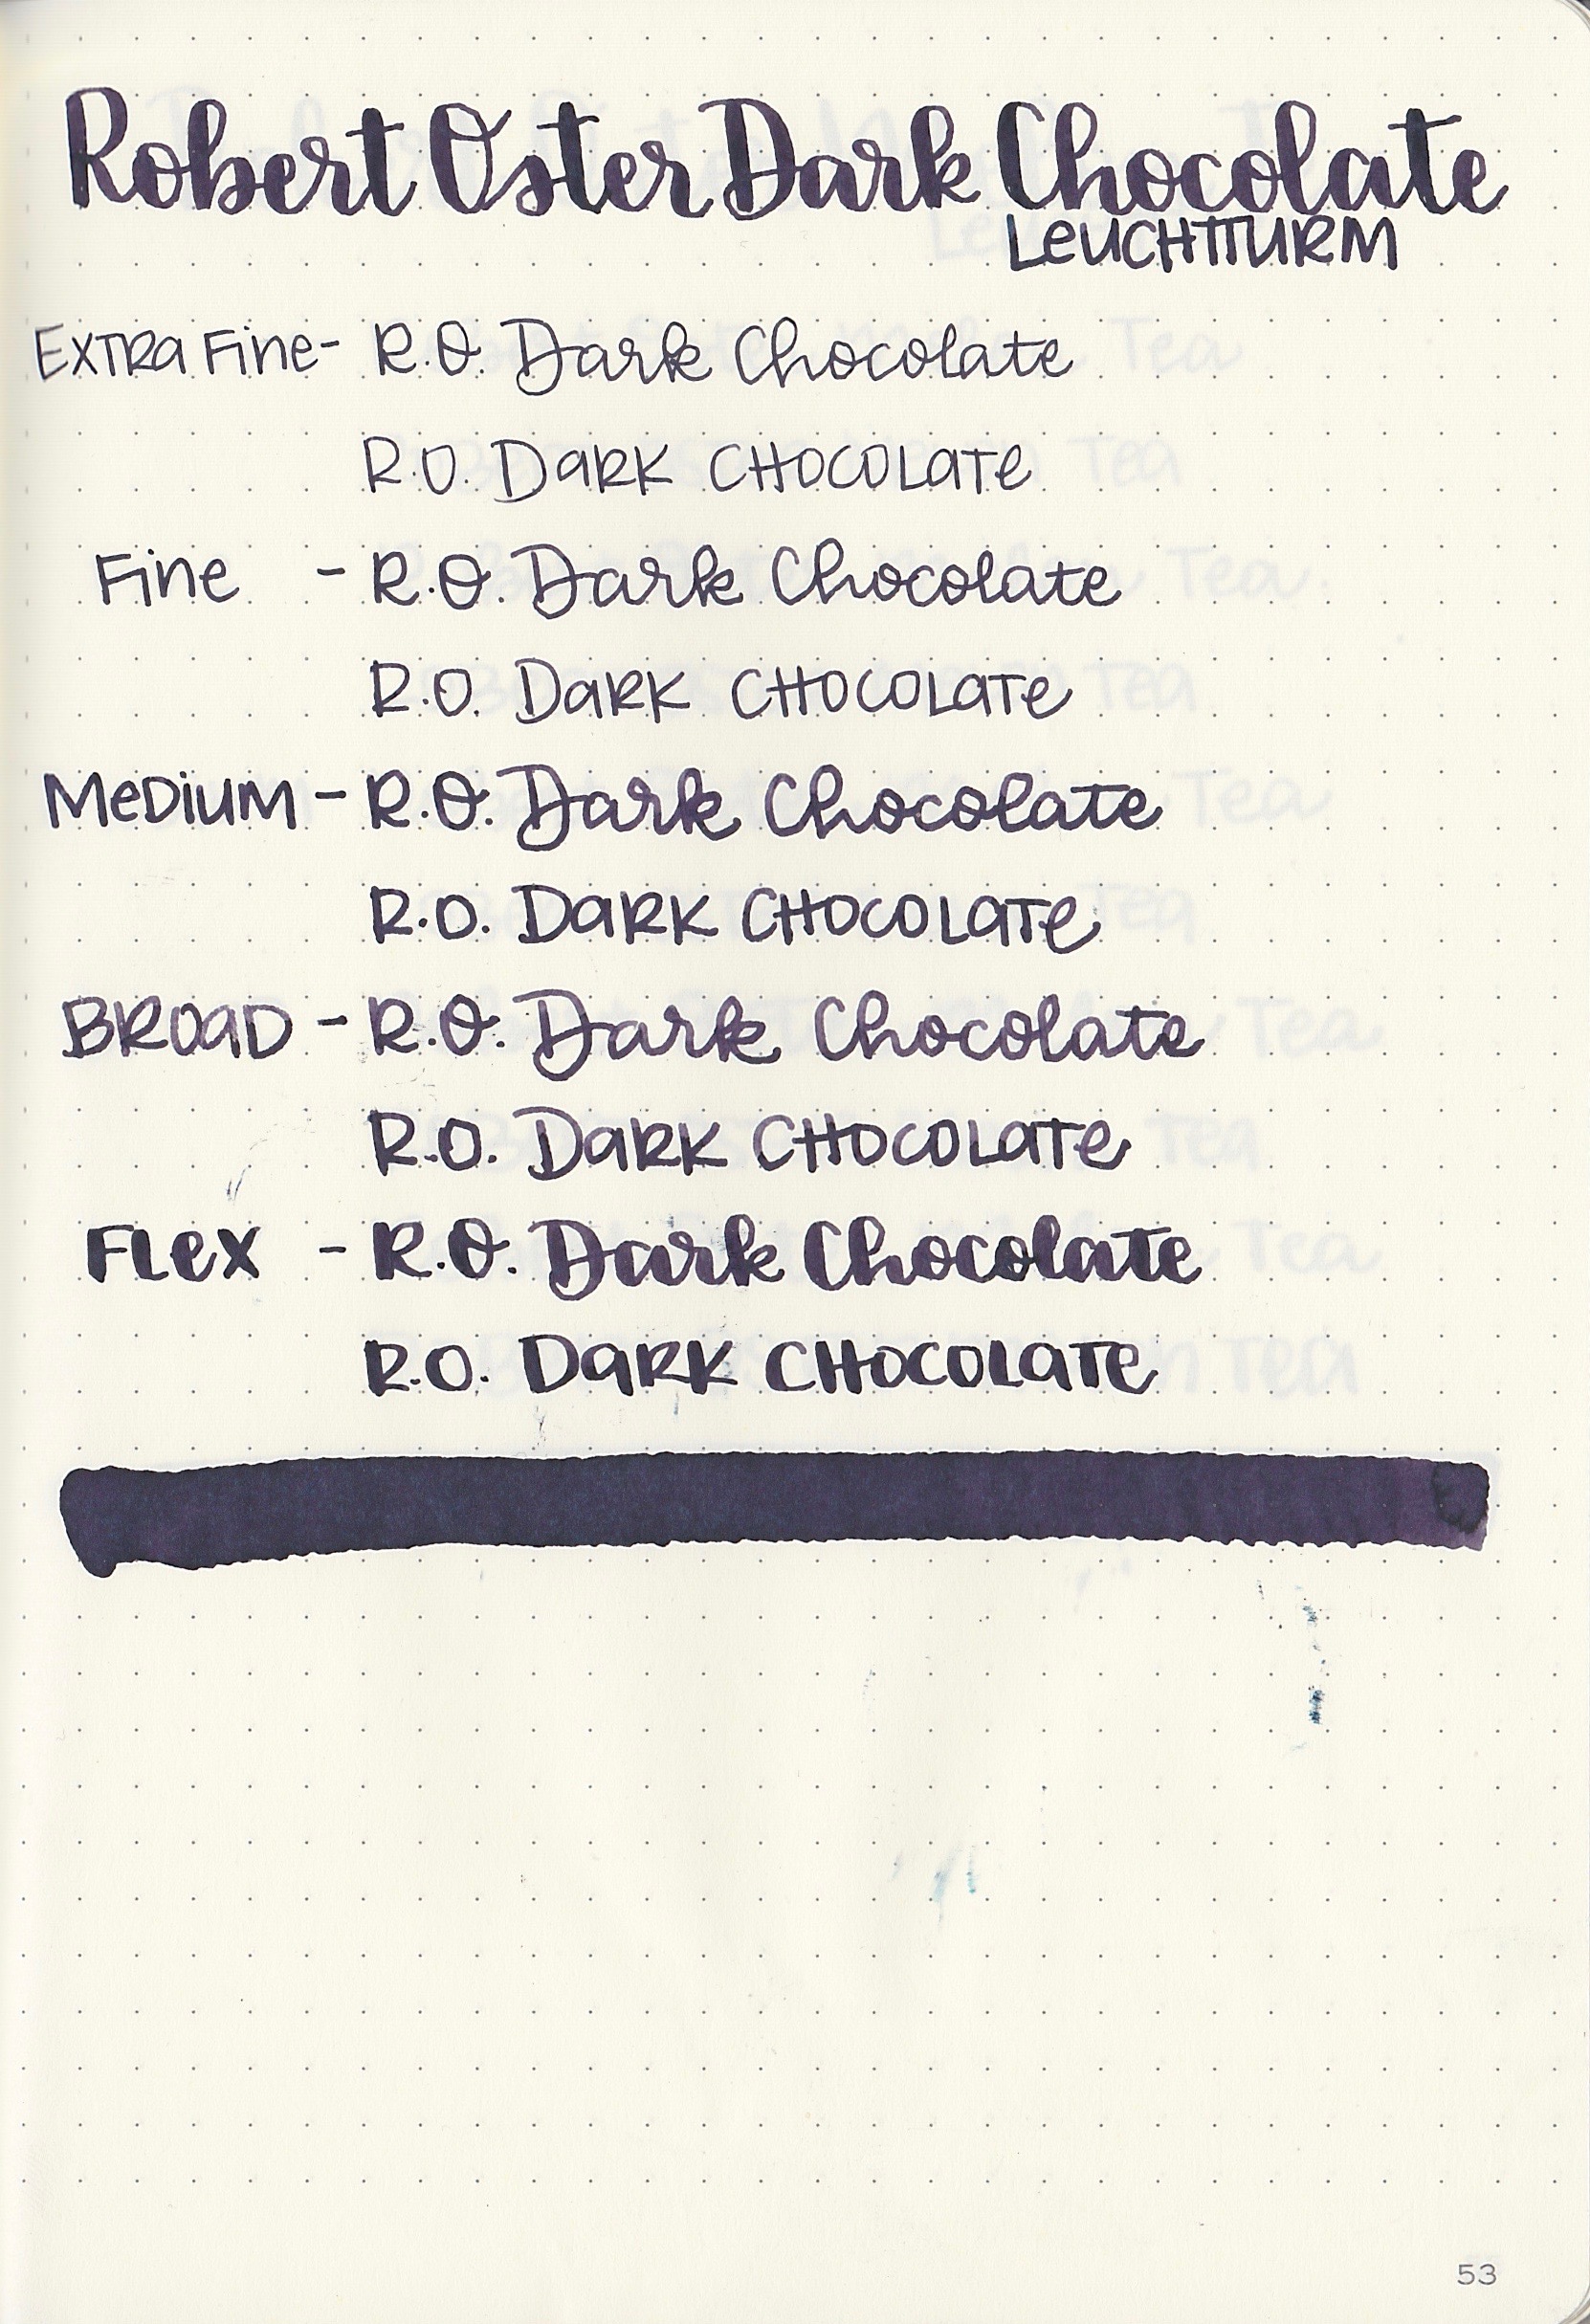 Robert Oster Dark Chocolate
LEUCHTTURM
EXTRA FINE - R.O. Dark Chocolate
R.O. DARK CHOCOLATE
FINE - R.O. Dark Chocolate
R.O. DARK CHOCOLATE
MEDIUM - R.O. Dark Chocolate
R.O. DARK CHOCOLATE
BROAD - R.O. Dark Chocolate
R.O. DARK CHOCOLATE
FLEX - R.O. Dark Chocolate
R.O. DARK CHOCOLATE
53